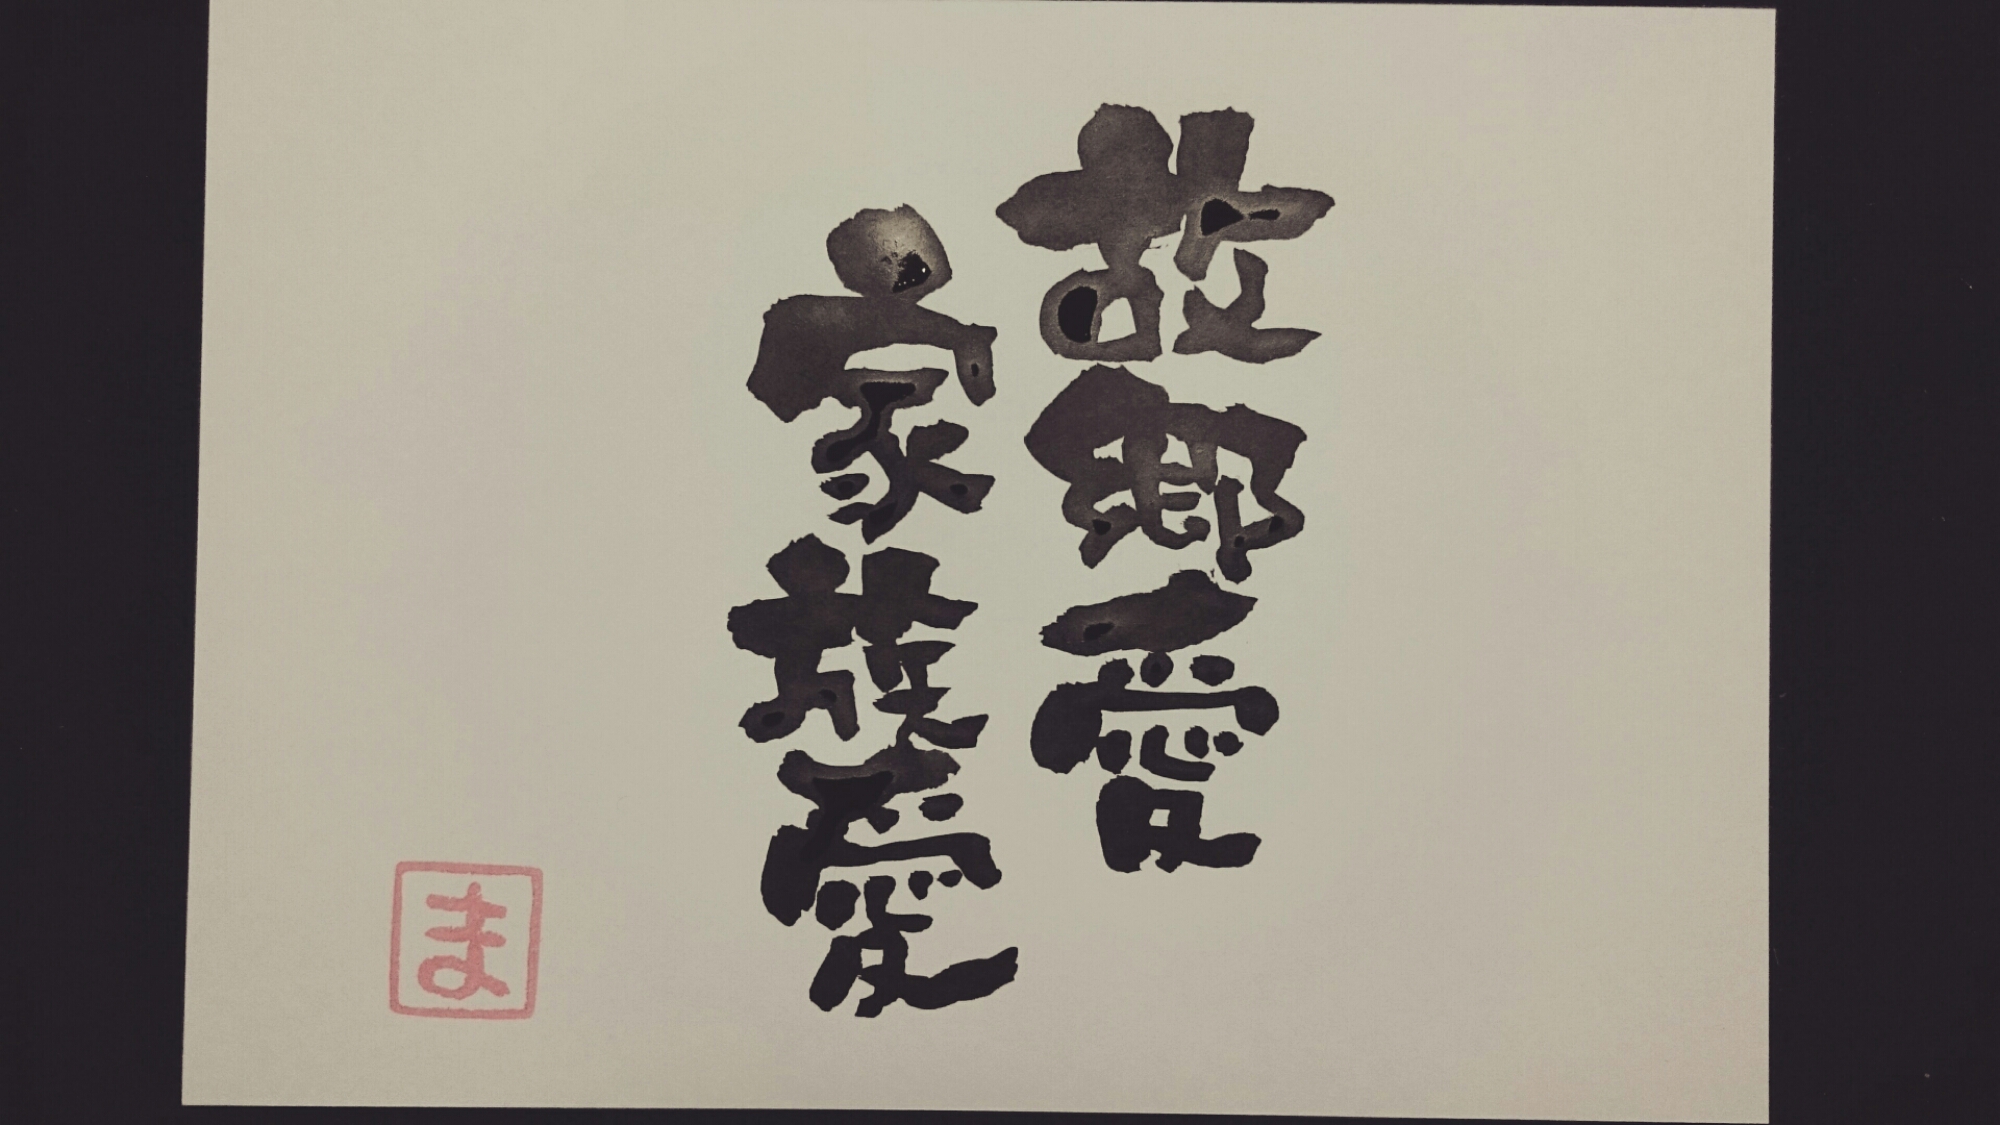 故郷愛
家族愛
ま